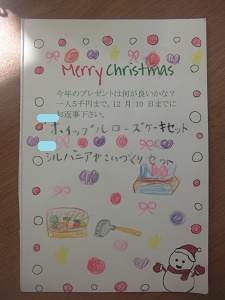 Merry Christmas
今年のプレゼントは何が良いかな?
一人5千円まで。12月10日までに
お返事下さい。
ホイップルローズケーキセット
シルバニアやさいづくりセット